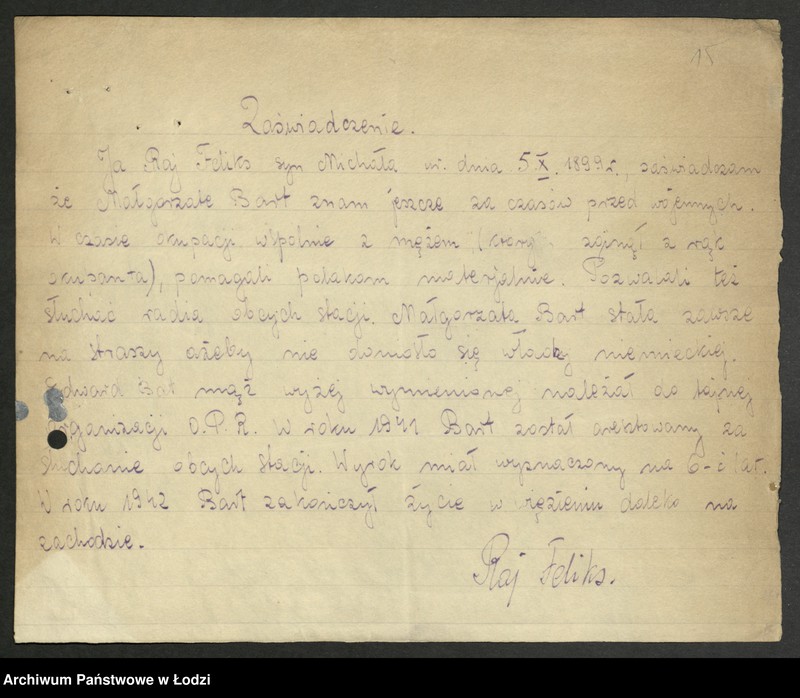 15
Zaświadczenie.
Ja Raj Feliks syn Michała ur. dnia 5.X.1899r., zaświadczam
że Małgorzate Bart znam jeszcze za czasów przed wojennych.
W czasie okupacji wspolnie z mężem (ktory zginął z rąk
okupanta), pomagali polakom materjalnie. Pozwalali też
słuchać radia obcych stacji. Małgorzata Bart stała zawsze
na straszy ażeby nie doniosło się władzy niemieckiej.
Edward Bart mąż wyżej wymienionej należał do tajnej
organizacji O.P.R. W roku 1941 Bart został arektowany za
słuchanie obcych stacji. Wyrok miał wyznaczony na 6-ć lat.
W roku 1942 Bart zakończył życie w więzieniu daleko na
zachodzie.
Raj Feliks.
Archiwum Państwowe w Łodzi